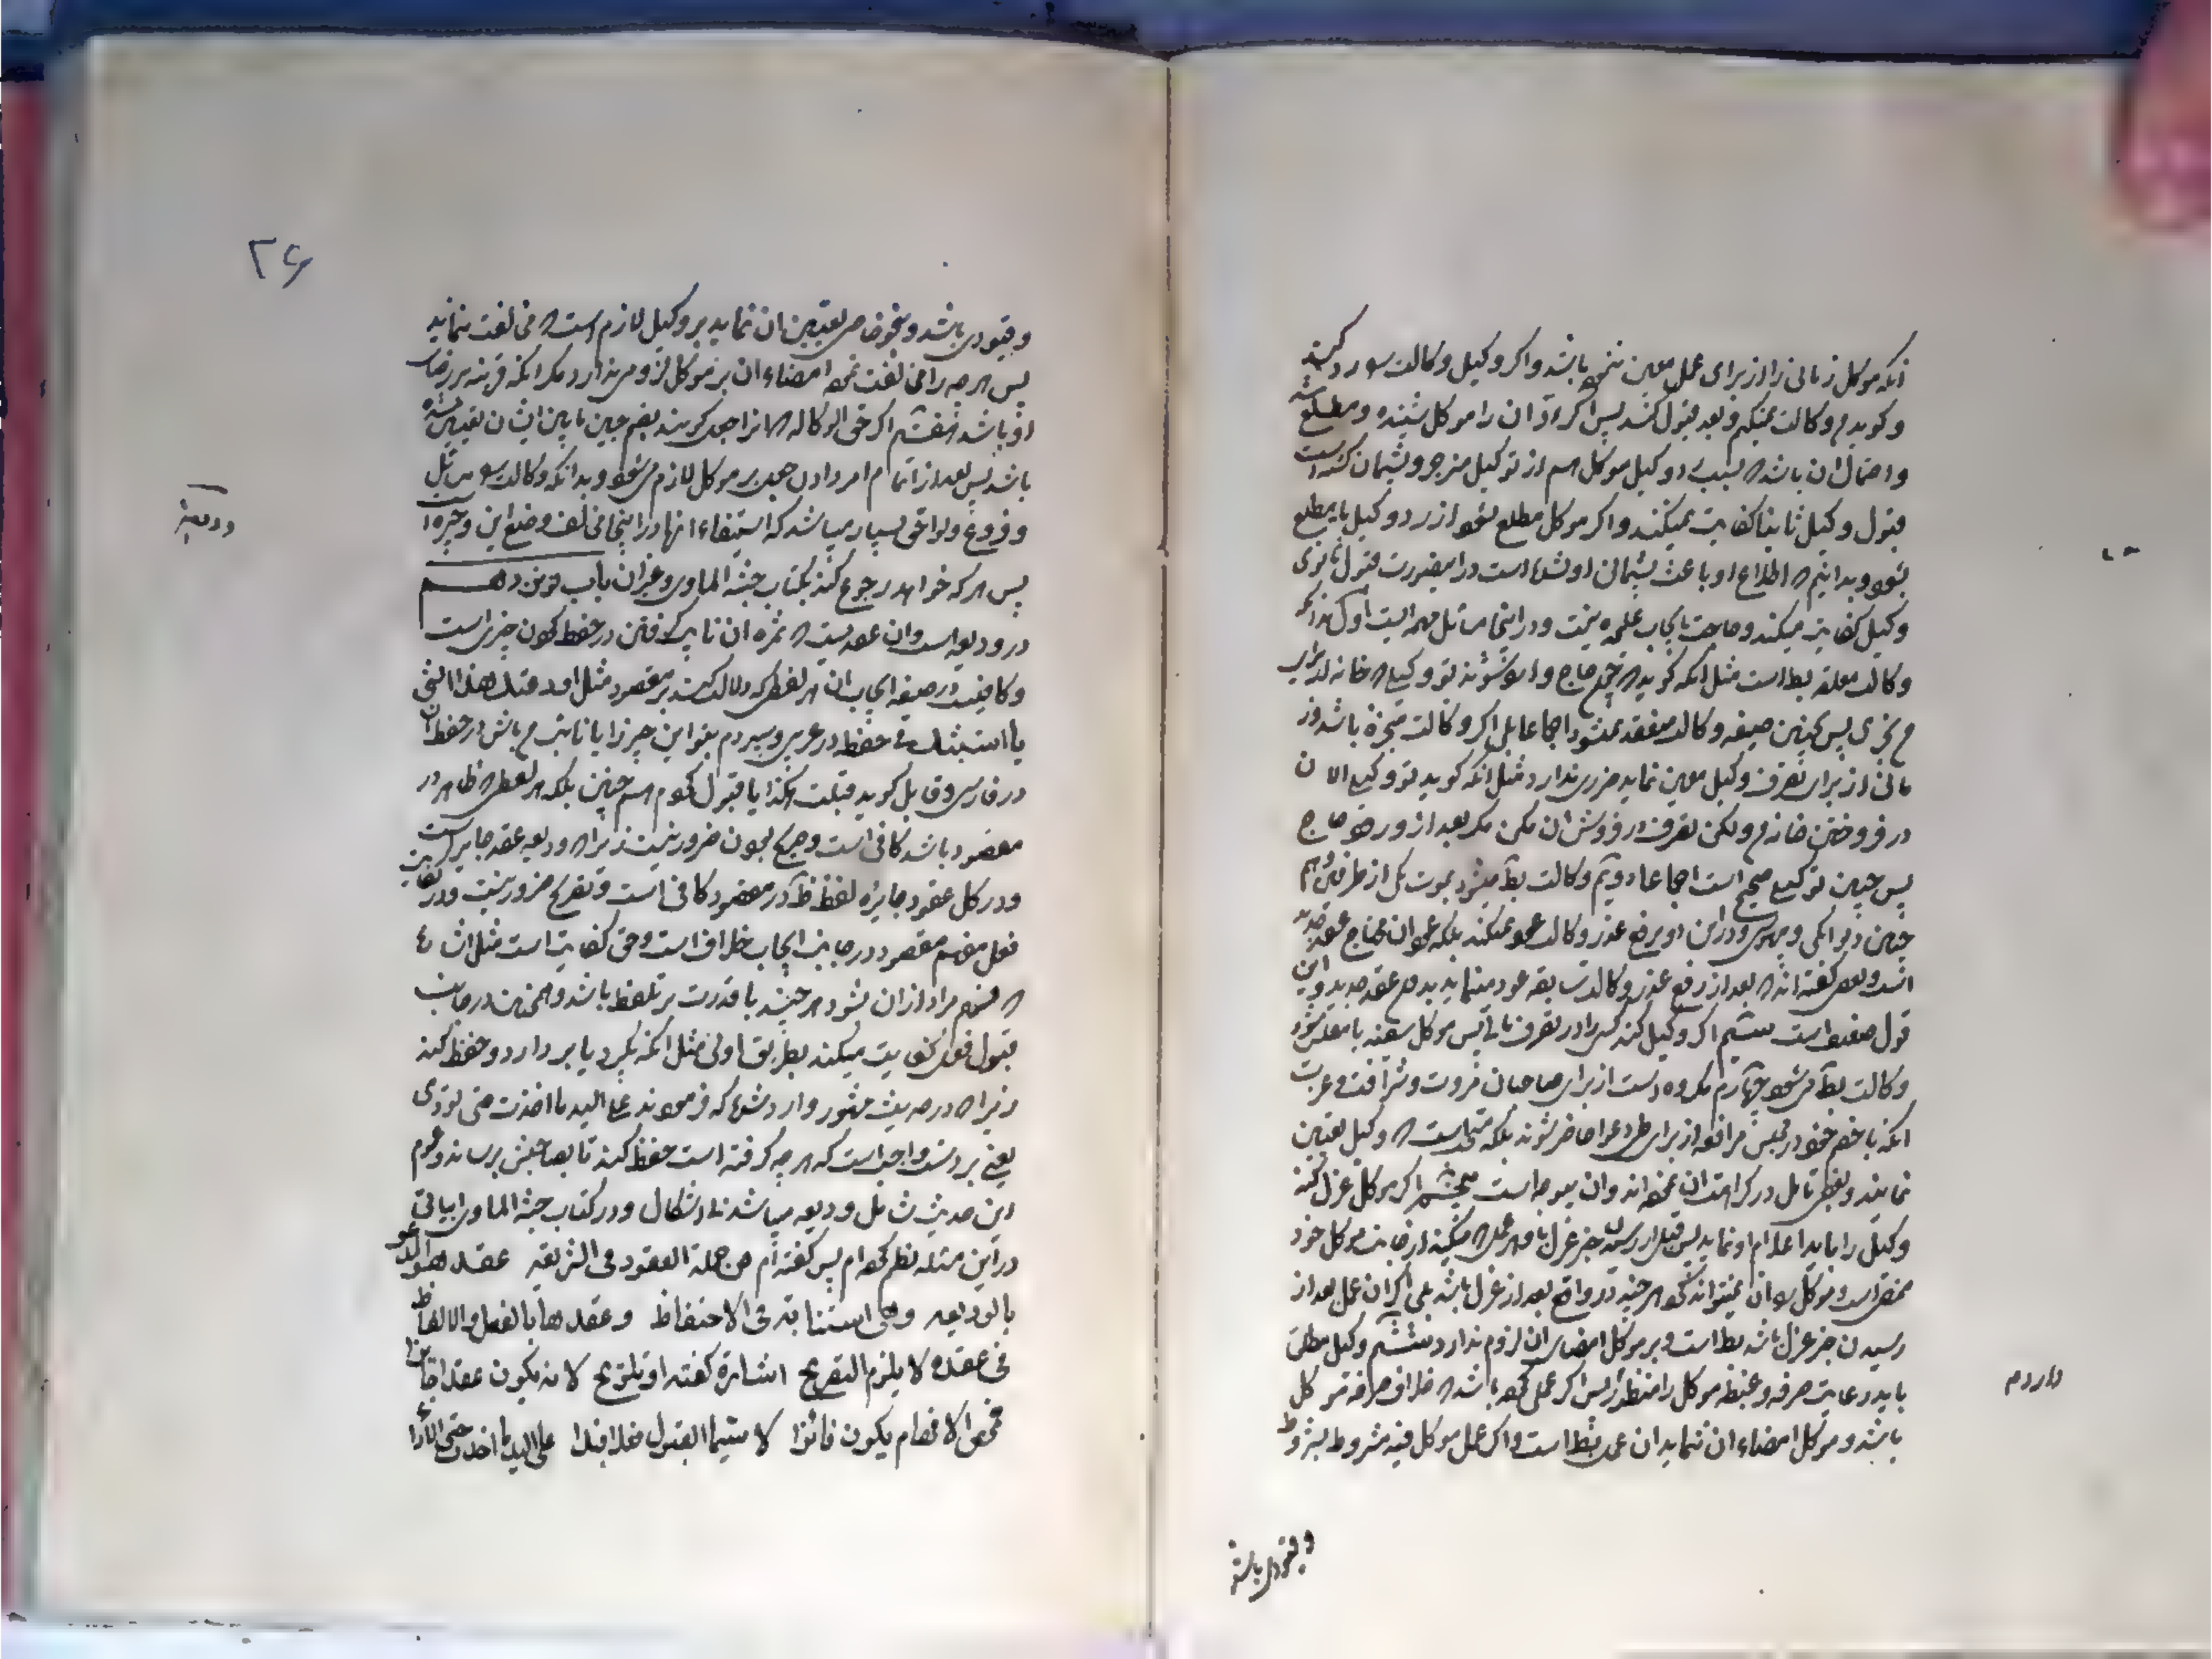 آنکه موکل زمانی را از برای عمل معین ننموده باشد و اگر وکیل وکالت را رد کند
و گوید من وکالت نمیکنم و بعد قبول کند پس اگر رد آن را موکل شنیده و مطلع شد
و احتمال آن باشد که بسبب رد وکیل موکل هم از توکیل منزجر و پشیمان گشته است
قبول وکیل ثانیا کفایت نمیکند و اگر موکل مطلع نشود از رد وکیل یا مطلع
بشود و بدانیم که اطلاع او باعث پشیمانی او نشده است در اینصورت قبول ثانوی
وکیل کفایت میکند و حاجت بایجاب علیحده نیست و در اینجا مسائل مهمه ایست اول آنکه
وکالت معلقه بط است مثل آنکه گوید که حجاج وارد شوند تو وکیلی که خانه از برای
من بخری پس بچنین صیغه وکالت منعقد نمیشود اجماعا بلی اگر وکالت منجزه باشد و ز
مانی از برای تصرف وکیل معین نماید ضرری ندارد مثل آنکه گوید تو وکیلی الان
در فروختن خانه من ولکن تصرف در فروش آن مکن مگر بعد از ورود حاج
پس چنین توکیلی صحیح است اجماعا دویم وکالت بط میشود بموت یکی از طرفین و هم
چنین دیوانگی و بیهوشی و در این دو برفع عذر وکالت عود نمیکند بلکه عود آن محتاج بعقد جدید
است و بعضی گفته‌اند که بعد از رفع عذر وکالت سابقه عود مینماید بدون عقد جدید و این
قول ضعیف است سیم اگر وکیل کند کسی را در تصرف مالی پس موکل سفیه یا مفلس شود
وکالت بط میشود چهارم مکروه است از برای صاحبان ثروت و شرافت و عزت
آنکه با خصم خود در مجلس مرافعه از برای طرح دعوا حاضر شوند بلکه مستحب است که وکیل تعیین
نمایند و بعضی تامل در کراهت آن نموده‌اند و آن بیوجه است پنجم اگر موکل عزل کند
وکیل را باید اعلام او نماید پس قبل از رسیدن خبر عزل باو هر عملی که میکند از جانب موکل خود
ممضی است و موکل رد آن نمیتواند نمود هر چند در واقع بعد از عزل باشد بلی اگر آن عمل بعد از
رسیدن خبر عزل باشد بط است و بر موکل امضای آن لزوم ندارد ششم وکیل مطلق
باید رعایت صرفه و غبطه موکل را منظور دارد پس اگر عملی نموده باشد که خلاف صرفه موکل
باشد و موکل امضاء آن ننماید آن عمل بط است و اگر عمل موکل فیه مشروط بشروط
و قیودی باشد
وارد م
۲۶
و قیودی باشد و بنحو خاصی تعیین آن نماید بر وکیل لازم است که مخالفت ننماید
پس هر چه را مخالفت نموده امضاء آن بر موکل لزومی ندارد مگر آنکه قرینه بر رضای
او باشد هفتم اگر حق الوکاله که آنرا جعل گویند بضم جیم مابین ایشان تعیین شده
باشد پس بعد از اتمام امر دادن جعل بر موکل لازم میشود و بدانکه وکالت را مسائل
و فروع و لواحق بسیار میباشد که استیفاء آنها در اینجا مخالف وضع این وجیزه است
پس هر که خواهد رجوع کند بکتاب جنة الماوی و غیر آن باب نوزدهم
در ودیعه است و آن عقدیست که ثمره آن نایب گرفتن در حفظ نمودن چیزی است
و کافیست در صیغه ایجاب آن هر لفظی که دلالت کند بر مقصود مثل اودعتک هذا الشی
یا استنبتک فی حفظه در عربی و سپردم بتو این چیز را یا نایب من باش در حفظ آن
در فارسی و قابل گوید قبلت هکذا یا قبول نمودم همچنین بلکه هر لفظی که ظاهر در
مقصود باشد کافی است و صریح بودن ضرور نیست زیرا که ودیعه عقد جایز است
و در کل عقود جایزه لفظ ظاهر در مقصود کافی است و تصریح ضرور نیست و در کفایت
فعل مفهم مقصود در جانب ایجاب خلاف است و حق کفایت است مثل اشاره
که فهم مراد از آن بشود هر چند با قدرت بر تلفظ باشد و همچنین در جانب
قبول فعل کفایت میکند بطریق اولی مثل آنکه بگیرد یا بردارد و حفظ کند
زیرا که در حدیث مشهور وارد شده که فرمودند علی الید ما اخذت حتی تؤدی
یعنی بر دست واجب است که هر چه گرفته است حفظ کند تا بصاحبش برساند و عموم
این حدیث شامل ودیعه میباشد بلا اشکال و در کتاب جنة الماوی ابیاتی
در این مسئله نظم نموده‌ام پس گفته‌ام من جملة العقود فی الشریعه عقد هو المدعو
بالودیعه وهی استنابة فی الاحتفاظ وعقدها بالفعل والالفاظ
فی عقده لا یلزم التصریح اشارة کفته او تلویح لانه یکون عقدا جائزا
فمحض الافهام یکون فائزا لا سیما القبول فعلا فبدا علی الید ما اخذت حتی الادا
ودیعه